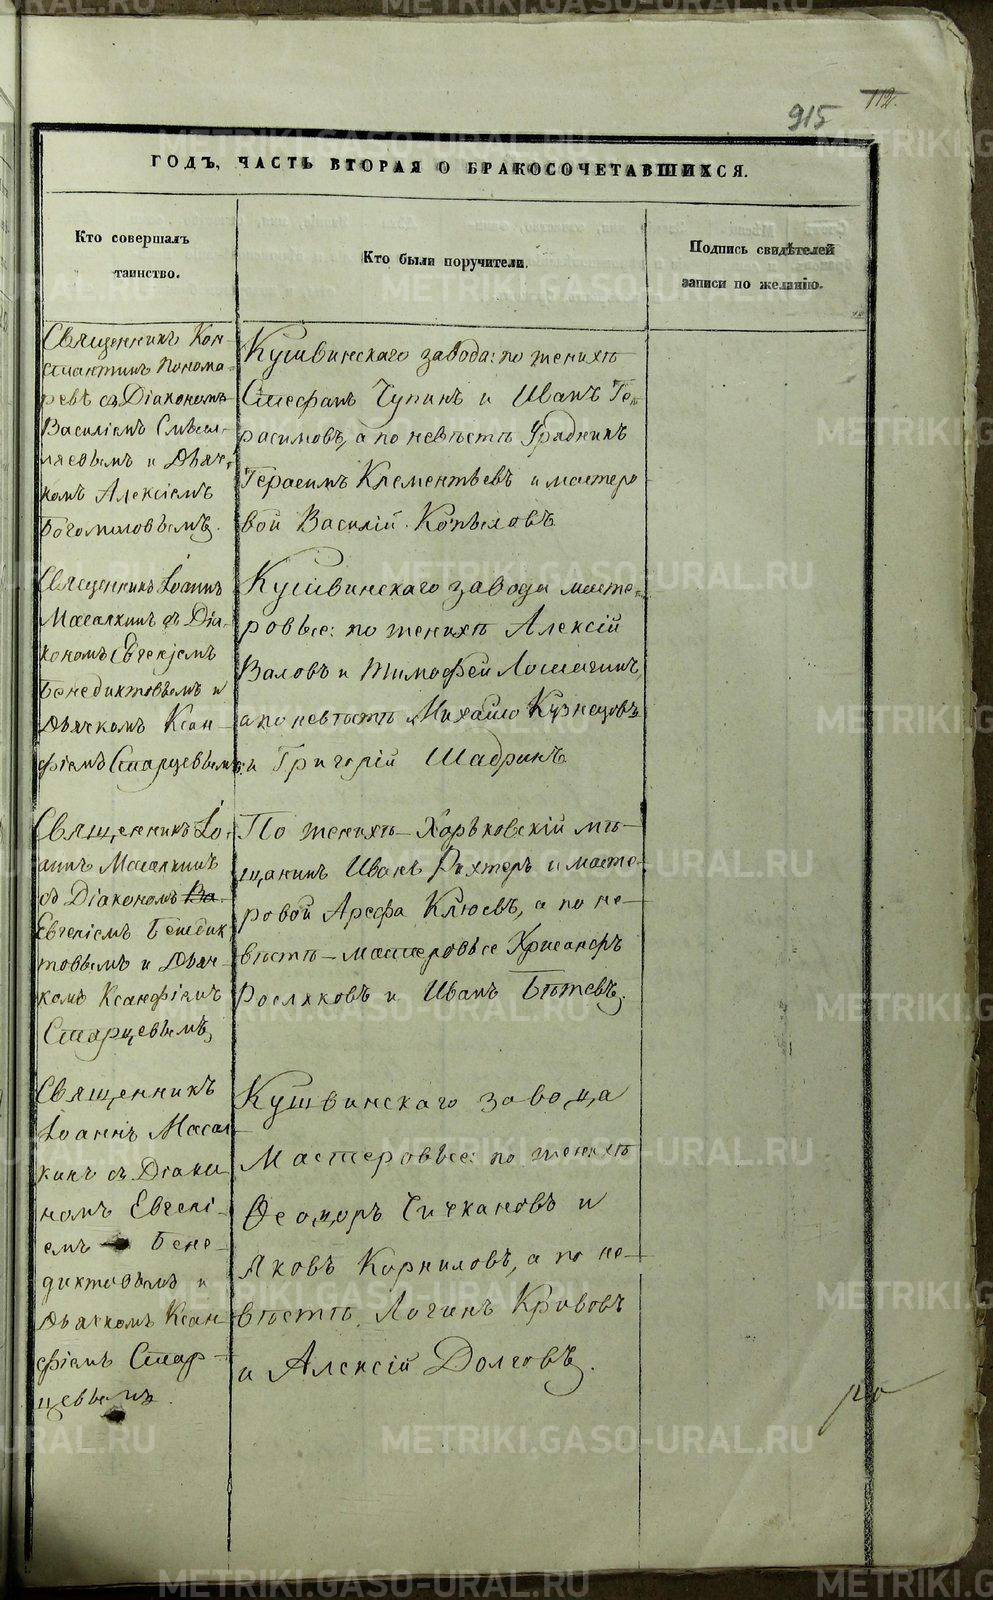 915
112.
ГОДЪ, ЧАСТЬ ВТОРАЯ О БРАКОСОЧЕТАВШИХСЯ.
Кто совершалъ
таинство.
Кто были поручители.
Подпись свидѣтелей
записи по желанію.
Священникъ Кон-
стантинъ Понома-
ревъ съ Діакономъ
Василіемъ
и Дьяч-
комъ Алексіемъ
Богомоловымъ.
Кушвинскаго завода: по женихѣ
Стефанъ Чупинъ и Иванъ Ге-
расимовъ, а по невѣстѣ Урядникъ
Герасимъ Клементьевъ и мастеро-
вой Василій Копыловъ
Священникъ Іоаннъ
Масалкинъ съ Діа-
кономъ Евгеніемъ
Бенедиктовымъ и
Дьячкомъ Ксан-
фіемъ Старцевымъ
Кушвинскаго завода масте-
ровые: по женихѣ Алексій
Валовъ и Тимофей Лошагинъ,
а по невѣстѣ Михайло Кузнецовъ
и Григорій Шадринъ
Священникъ Іо-
аннъ Масалкинъ
съ Діакономъ Ва-
Евгеніемъ Бенедик
товымъ и Дьяч-
комъ Ксанфіемъ
Старцевымъ
По женихѣ – Харьковскій мѣ-
щанинъ Иванъ Рихтеръ и масте-
ровой Арефа Клюевъ, а по не-
вѣстѣ – мастеровые Хрисанфъ
Росляковъ и Иванъ
Священникъ
Іоаннъ Масал-
кинъ съ Діако
номъ Евгені-
емъ Бене-
диктовымъ и
Дьячкомъ Ксан
фіемъ Стар-
цевымъ.
Кушвинскаго завода
Мастеровые: по женихѣ
Ѳеодоръ Чичкановъ и
Яковъ Корниловъ, а по не-
вѣстѣ Логинъ Кривовъ
и Алексій Долговъ.
METRIKI.GASO-URAL.RU